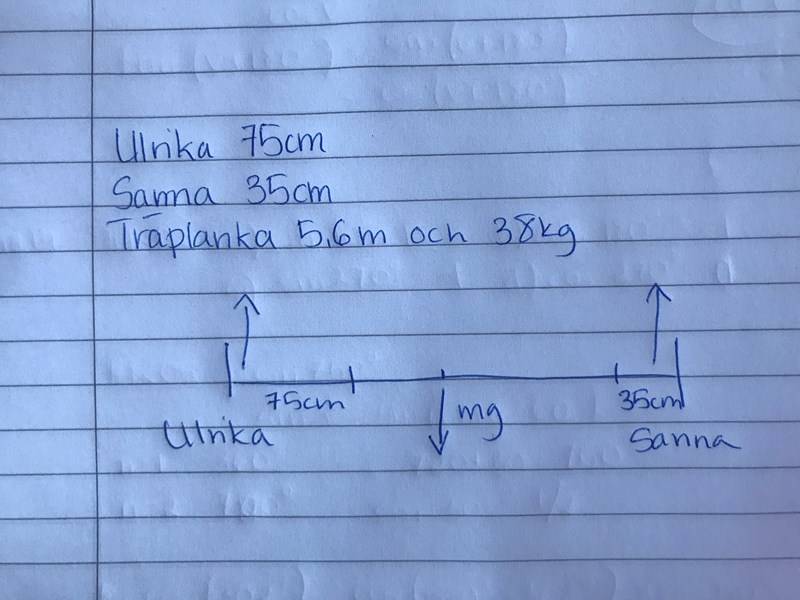 Ulrika 75cm
Sanna 35cm
Träplanka 5,6m och 38kg
75cm
35cm
mg
Ulrika
Sanna